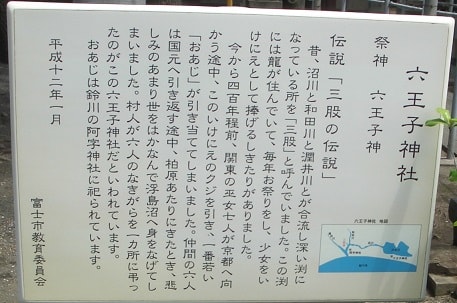 六王子神社
祭神　六王子神
伝説「三股の伝説」
昔、沼川と和田川と潤井川とが合流し深い渕に
なっている所を「三股」と呼んでいました。この渕
には龍が住んでいて、毎年お祭りをし、少女をい
けにえとして捧げるしきたりがありました。
今から四百年程前、関東の巫女七人が京都へ向
かう途中、このいけにえのクジを引き、一番若い
「おあじ」が引き当ててしまいました。仲間の六人
は国元へ引き返す途中、柏原あたりにきたとき、悲
しみのあまり世をはかなんで浮島沼へ身をなげてし
まいました。村人が六人のなきがらを一カ所に弔っ
たのがこの六王子神社だといわれています。
おあじは鈴川の阿字神社に祀られています。
平成十二年一月
富士市教育委員会
六王子神社